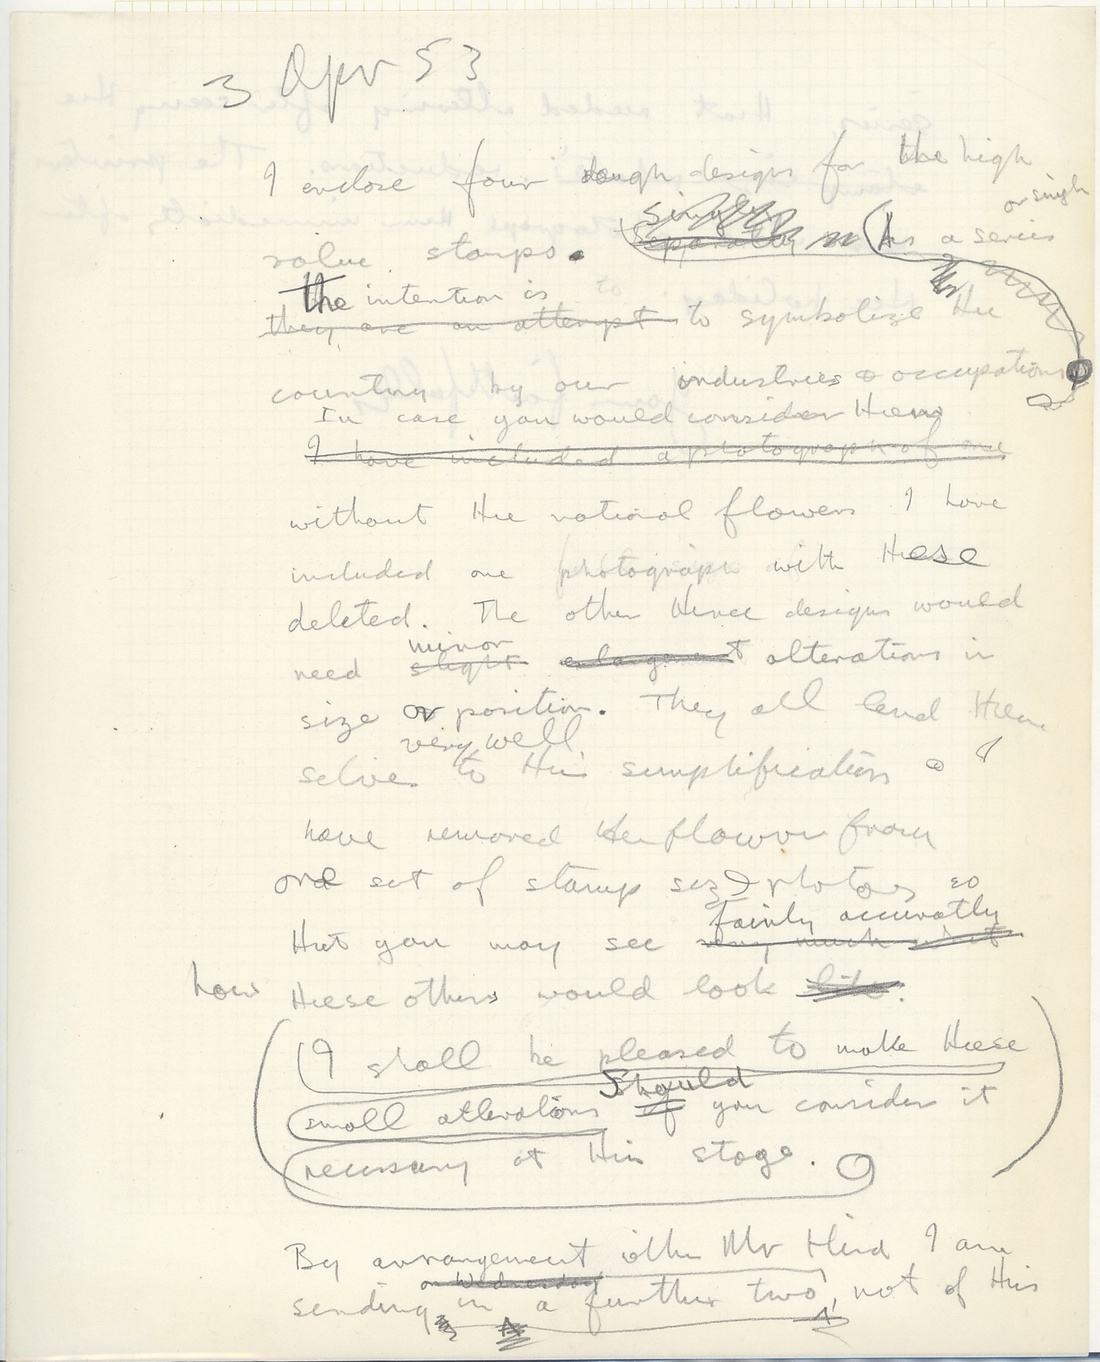 3 Apr 53
I enclose four rough designs for the high
or singly
singly
value stamps. separately As a series
The intention is
they are an attempt to symbolize the
country by our industries & occupations
In case you would consider them
I have included a photograph of one
without the national flowers I have
included one photograph with these
deleted. The other three designs would
minor
need slight enlargement alterations in
size or position. They all lend them
very well
selves to this simplification & I
have removed the flower from
one set of stamp size photos so
fairly accuratly
that you may see very much what
how these others would look like.
(I shall be pleased to make these
Should
small alterations if you consider it
necessary at this stage.)
By arrangement with Mr Hind I am
on Wednesday
sending in a further two, not of this